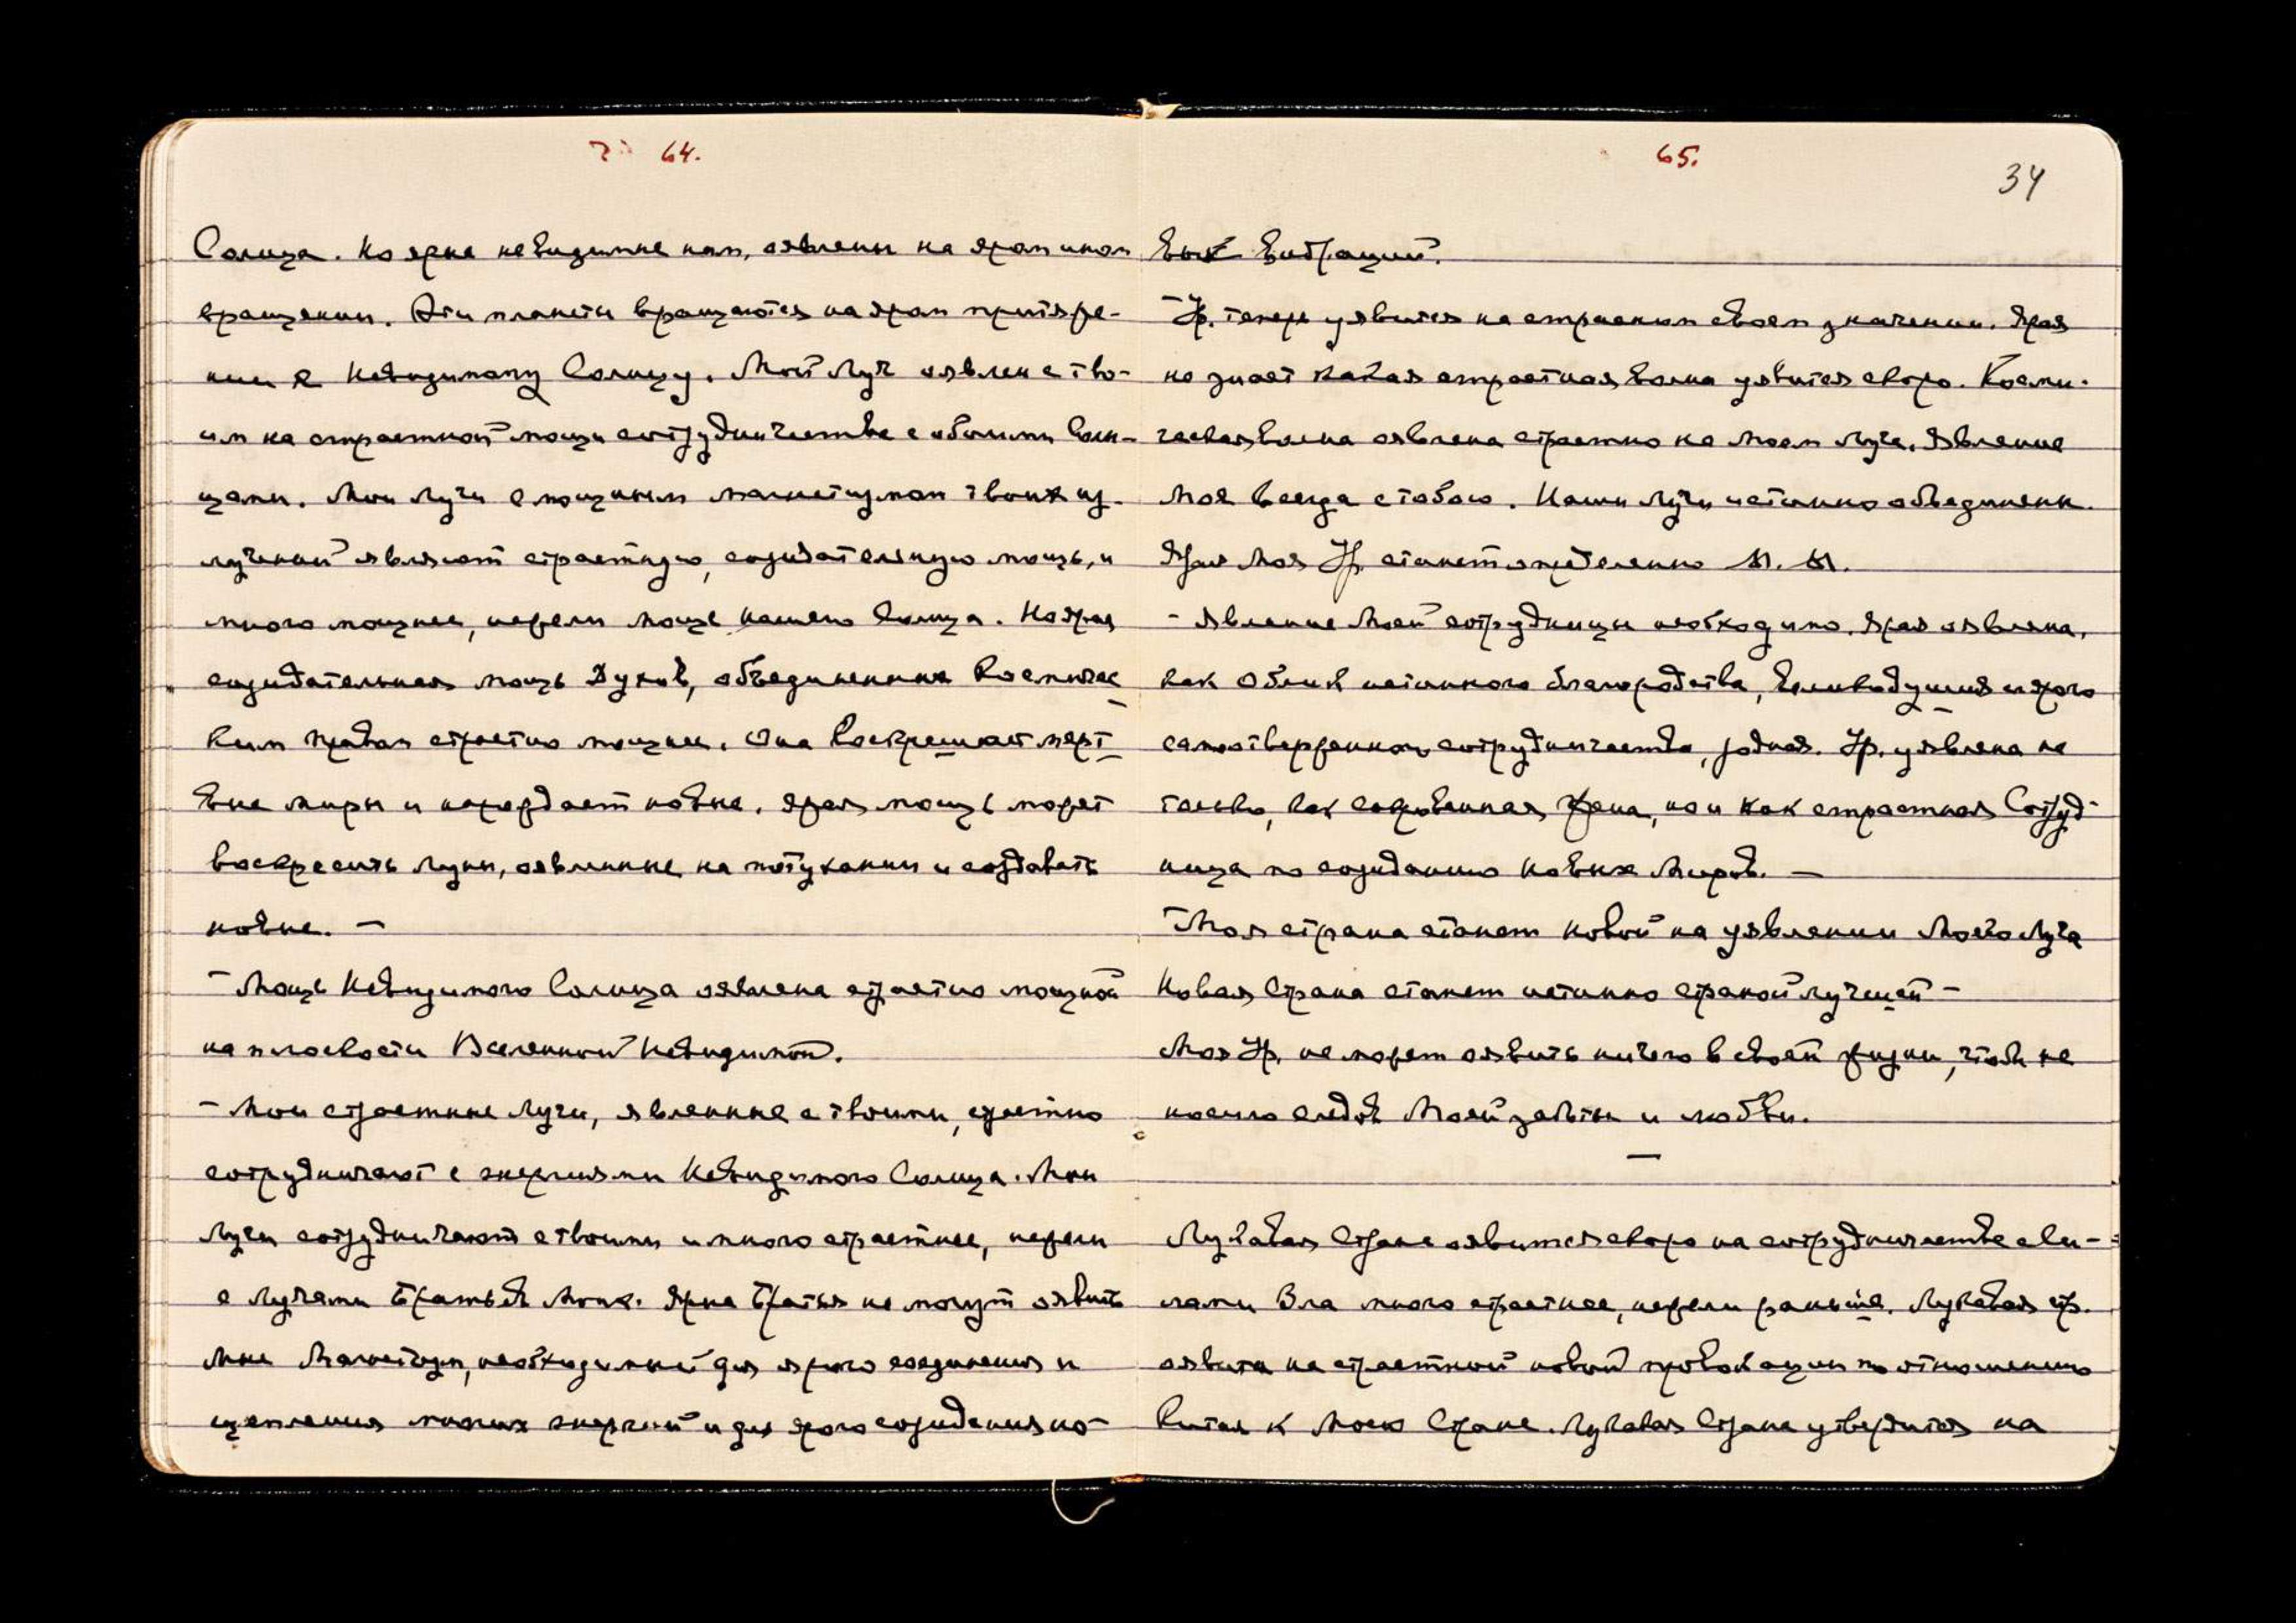 64.
Солнца. Но ярые невидимые нам, оявлены на яром ином
вращении. Эти планеты вращаются на яром притяже-
нии к Невидимому Солнцу. Мой Луч оявлен с тво-
им на страстной мощи сотрудничества с обоими Солн-
цами. Мои Лучи с мощным магнетизмом твоих из-
лучений являют страстную, созидательную мощь, и
много мощнее, нежели мощь нашего Солнца. Но ярая
созидательная мощь Духов, объединенных Космичес
ким Правом страстно мощнее. Она воскрешает мерт
вые миры и нарождает новые. Ярая мощь может
воскресить луны, оявленные на потухании и создавать
новые. —
— Мощь Невидимого Солнца оявлена страстно мощной
на плоскости Вселенной Невидимой.
— Мои страстные Лучи, явленные с твоими, страстно
сотрудничают с энергиями Невидимого Солнца. Мои
Лучи сотрудничают с твоими и много страстнее, нежели
с Лучами Братьев Моих. Ярые Братья не могут оявить
Мне Магнетизм, необходимый для ярого соединения и
сцепления многих энергий и для ярого созидания но-
65.
34
вых вибраций.
— Ур. теперь уявится на страстном своем значении. Ярая
не знает какая страстная волна уявится скоро. Косми-
ческая волна оявлена страстно на Моем Луче. Явление
Мое всегда с тобою. Наши Лучи истинно объединены.
Ярая Моя Ур. станет определенно М. М.
— Явление Моей сотрудницы необходимо. Ярая оявлена,
как Облик истинного благородства, великодушия и ярого
самоотверженного сотрудничества, родная. Ур. уявлена не
только, как сокровенная Жена, но и как страстная Сотруд-
ница по созиданию Новых Миров. —
— Моя страна станет новой на уявлении Моего Луча
Новая Страна станет истинно страной лучшей —
Моя Ур. не может оявить ничего в своей жизни, чтоб не
носило следов Моей заботы и любви.
—
Лукавая Страна оявится скоро на сотрудничестве с си-
лами Зла много страстнее, нежели раньше. Лукавая стр.
оявита на страстной новой провокации по отношению
Китая к Моей Стране. Лукавая Страна утвердится на